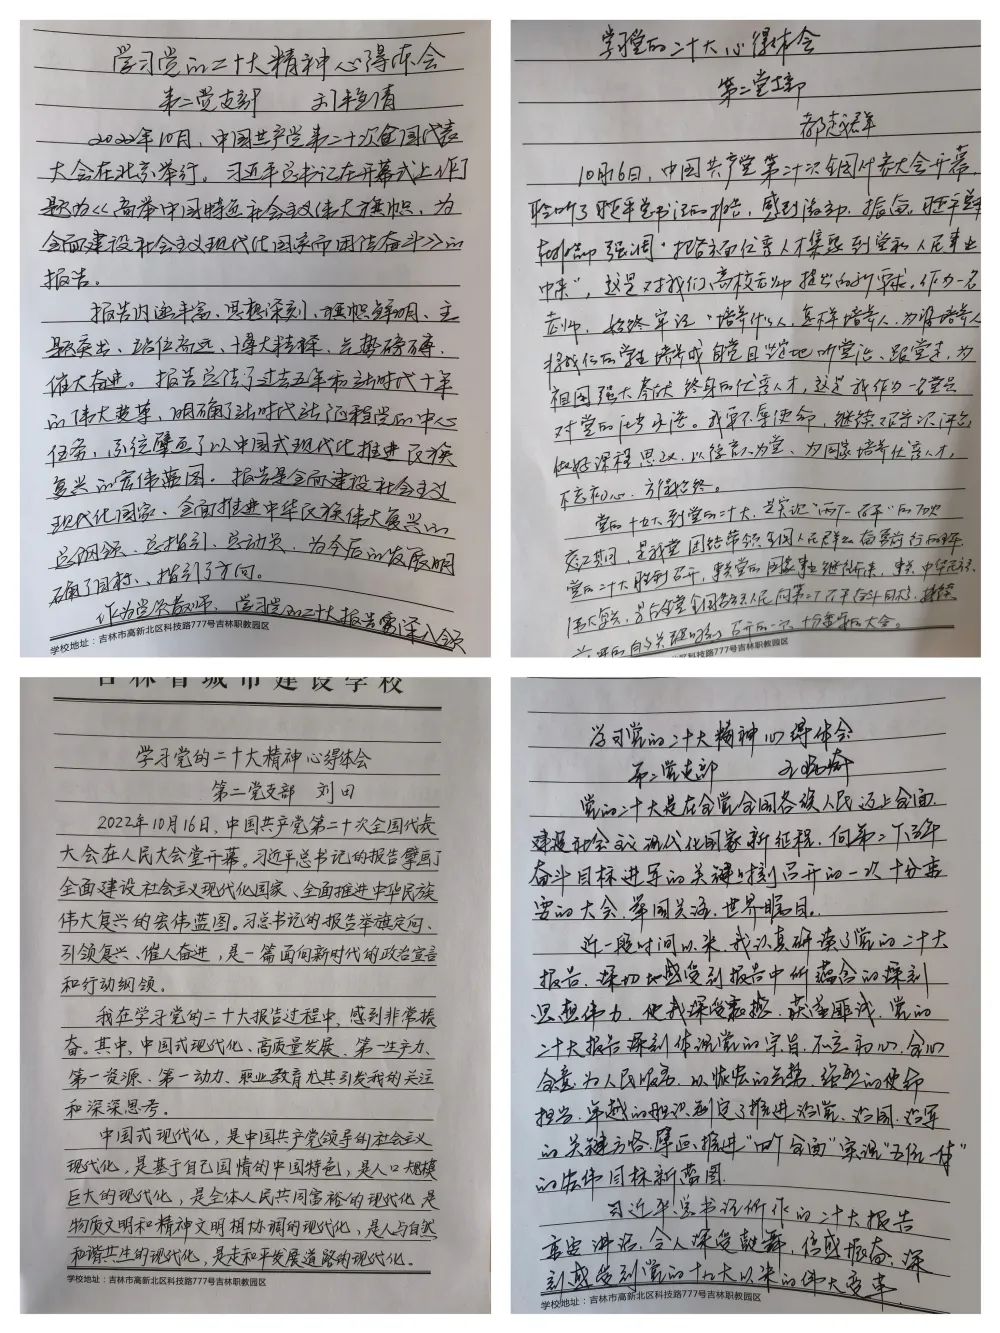 学习党的二十大精神心得体会
第二党支部 刘艳倩
2022年10月，中国共产党第二十次全国代表
大会在北京举行。习近平总书记在开幕式上作了
题为《高举中国特色社会主义伟大旗帜，为
全面建设社会主义现代化国家而团结奋斗》的
报告。
报告内涵丰富、思想深刻、旗帜鲜明、主
题突出、站位高远、博大精深、气势磅礴、
催人奋进。报告总结了过去五年和新时代十年
的伟大变革，明确了新时代新征程党的中心
任务，系统擘画了以中国式现代化推进民族
复兴的宏伟蓝图。报告是全面建设社会主义
现代化国家、全面推进中华民族伟大复兴的
总纲领、总指引、总动员，为今后的发展明
确了目标、指引了方向。
作为党员教师，学习党的二十大报告需深入领
学校地址：吉林市高新北区科技路777号吉林职教园区
学习党的二十大心得体会
第二党支部
10月16日，中国共产党第二十次全国代表大会开幕，
聆听了习近平总书记的报告，感到激动、振奋。
强调"把各方面优秀人才集聚到党和人民事业
中来"，这是对我们高校教师提出的新要求。作为一名
教师，始终牢记"培养什么人，怎样培养人，为谁培养人
将我们的学生培养成自觉且坚定地听党话、跟党走，为
祖国强大奉献终身的优秀人才，这是我作为一名党员
对党的庄严承诺。我要不辱使命，继续
做好课程思政，以德育人为党、为国家培养优秀人才，
不忘初心，方得始终。
党的十九大到党的二十大，是实现"两个一百年"的历史
交汇期，是我党团结带领全国人民
党的二十大胜利召开，事关党和国家事业继往开来，事关中华民族
的一次十分重要的大会。
科技路777号吉林职教园区
吉林省城市建设学校
学习党的二十大精神心得体会
第二党支部 刘田
2022年10月16日，中国共产党第二十次全国代表
大会在人民大会堂开幕。习近平总书记的报告擘画了
全面建设社会主义现代化国家、全面推进中华民族
伟大复兴的宏伟蓝图。习总书记的报告举旗定向、
引领复兴、催人奋进，是一篇面向新时代的政治宣言
和行动纲领。
我在学习党的二十大报告过程中，感到非常振
奋。其中，中国式现代化、高质量发展、第一生产力、
第一资源、第一动力、职业教育尤其引发我的关注
和深深思考。
中国式现代化，是中国共产党领导的社会主义
现代化，是基于自己国情的中国特色，是人口规模
巨大的现代化，是全体人民共同富裕的现代化，是
物质文明和精神文明相协调的现代化，是人与自然
和谐共生的现代化，是走和平发展道路的现代化。
学校地址：吉林市高新北区科技路777号吉林职教园区
学习党的二十大精神心得体会
第二党支部
党的二十大是在全党全国各族人民迈上全面
建设社会主义现代化国家新征程，向第二个百年
奋斗目标进军的关键时刻召开的一次十分重
要的大会，举国关注，世界瞩目。
近一段时间以来，我认真研读了党的二十大
报告，深切地感受到报告中所蕴含的深刻
思想伟力，使我深受震撼，获益匪浅，党的
二十大报告深刻体现党的宗旨，不忘初心，全心
全意为人民服务，以恢宏的气势、强烈的使命
担当、卓越的胆识制定了推进治党、治国、治军
的关键方略，厚画推进"四个全面"实现"五位一体"
的宏伟目标新蓝图
习近平总书记所作的二十大报告
高屋建瓴，令人深受鼓舞，倍感振奋，深
刻感受到党的十九大以来的伟大变革，
学校地址：吉林市高新北区科技路777号吉林职教园区